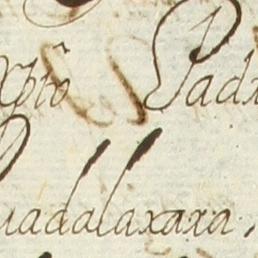 Xptô Padr
uadalaxara,